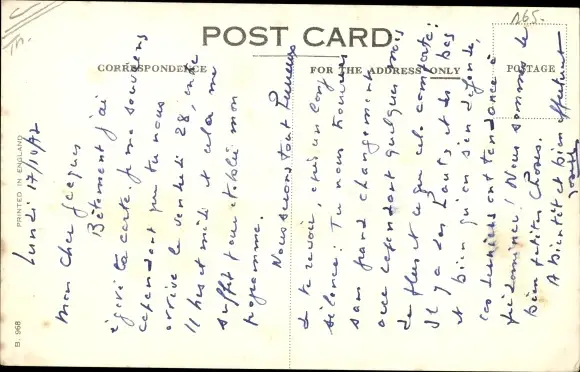 POST CARD
CORRESPONDENCE
FOR THE ADDRESS ONLY
POSTAGE
PRINTED IN ENGLAND
B. 968
165.
Lundi 17/10/77
Mon cher Jacques
Bêtement j'ai
égaré la carte. Je me souviens
cependant que tu nous
arrive le vendredi 28, entre
11 hes et midi et cela me
suffit pour établir mon
programme.
Nous serons tout heureux
de te revoir, après un long
silence! Tu nous trouveras
sans grand changement
avec cependant quelques mois
de plus et ce que cela comporte:
Il y a des hauts et des bas
et bien qu'on s'en défende,
ces derniers ont tendance à
prédominer! Nous sommes de
bien petites choses.
A bientôt et bien affectueusement